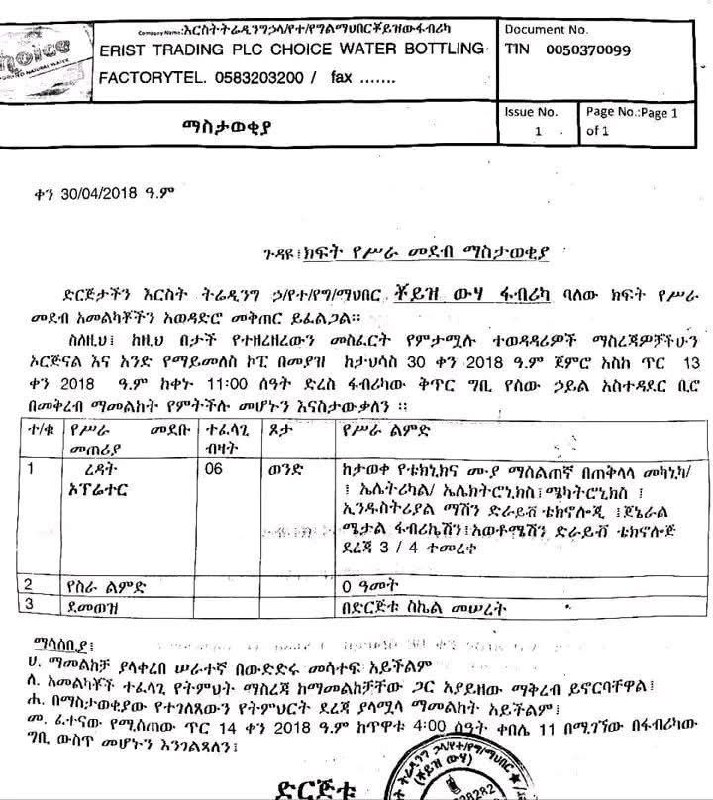 hoice
Company Name: እርስትትሬዲንግኃላ/የተ/የግልማህበርቾይዝውፋብሪካ
ERIST TRADING PLC CHOICE WATER BOTTLING
FACTORYTEL. 0583203200 / fax .......
Document No.
TIN 0050370099
ማስታወቂያ
Issue No.
1
Page No.:Page 1
of 1
ቀን 30/04/2018 ዓ.ም
ጉዳዩ፤ ክፍት የሥራ መደብ ማስታወቂያ
ድርጅታችን እርስት ትሬዲንግ ኃ/የተ/የግ/ማህበር ቾይዝ ውሃ ፋብሪካ ባለው ክፍት የሥራ
መደብ አመልካቾችን አወዳድሮ መቅጠር ይፈልጋል።
ስለዚህ፤ ከዚህ በታች የተዘረዘረውን መስፈርት የምታሟሉ ተወዳዳሪዎች ማስረጃዎቻችሁን
ኦርጅናል እና አንድ የማይመለስ ኮፒ በመያዝ ከታህሳስ 30 ቀን 2018 ዓ.ም ጀምሮ እስከ ጥር 13
ቀን 2018 ዓ.ም ከቀኑ 11:00 ሰዓት ድረስ ፋብሪካው ቅጥር ግቢ የሰው ኃይል አስተዳደር ቢሮ
በመቅረብ ማመልከት የምትችሉ መሆኑን እናስታውቃለን ።
ተ/ቁ የሥራ መደቡ መጠሪያ ተፈላጊ ብዛት ጾታ የሥራ ልምድ
1 ረዳት ኦፕሬተር 06 ወንድ ከታወቀ የቴክኒክና ሙያ ማሰልጠኛ በጠቅላላ መካኒካ/
፤ ኤሌትሪካል/ ኤሌክትሮኒክስ፤ሜካትሮኒክስ ፤
ኢንዱስትሪያል ማሽን ድራይቭ ቴክኖሎጂ ፤ጀኔራል
ሜታል ፋብሪኬሽን፤አወቶሜሽን ድራይቭ ቴክኖሎጅ
ደረጃ 3 / 4 ተመረቀ
2 የስራ ልምድ 0 ዓመት
3 ደመወዝ በድርጅቱ ስኬል መሠረት
ማሳሰቢያ፤
ሀ. ማመልከቻ ያላቀረበ ሠራተኛ በውድድሩ መሳተፍ አይችልም
ለ. አመልካቾች ተፈላጊ የትምህት ማስረጃ ከማመልከቻቸው ጋር አያይዘው ማቅረብ ይኖርባቸዋል፤
ሐ. በማስታወቂያው የተገለጸውን የትምህርት ደረጃ ያላሟላ ማመልከት አይችልም፤
መ. ፈተናው የሚሰጠው ጥር 14 ቀን 2018 ዓ.ም ከጥዋቱ 4:00 ሰዓት ቀበሌ 11 በሚገኘው በፋብሪካው
ግቢ ውስጥ መሆኑን እንገልጻለን፤
ድርጅቱ
ት ትሬዲንግ ኃ/የተ/የግ/ማህበር
(ቾይዝ ውሃ)